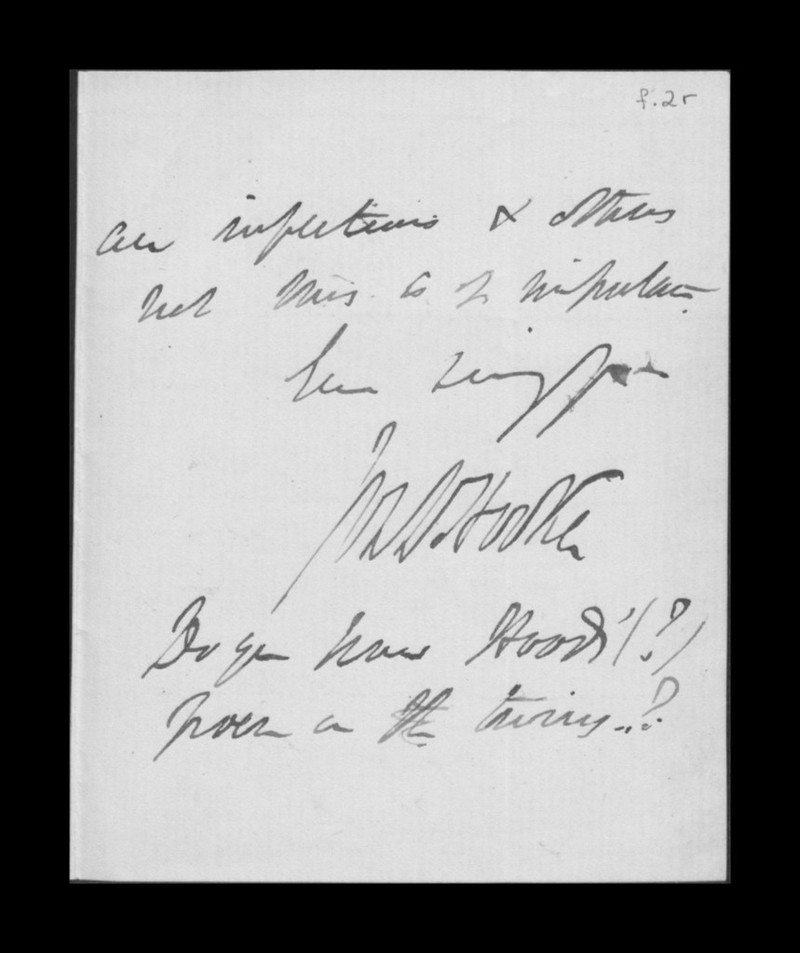 f.2r
are infectious & others
not this is of importance
Ever sincerely yours
Jos D. Hooker
Do you know Hood's (?)
poem on the twins..?